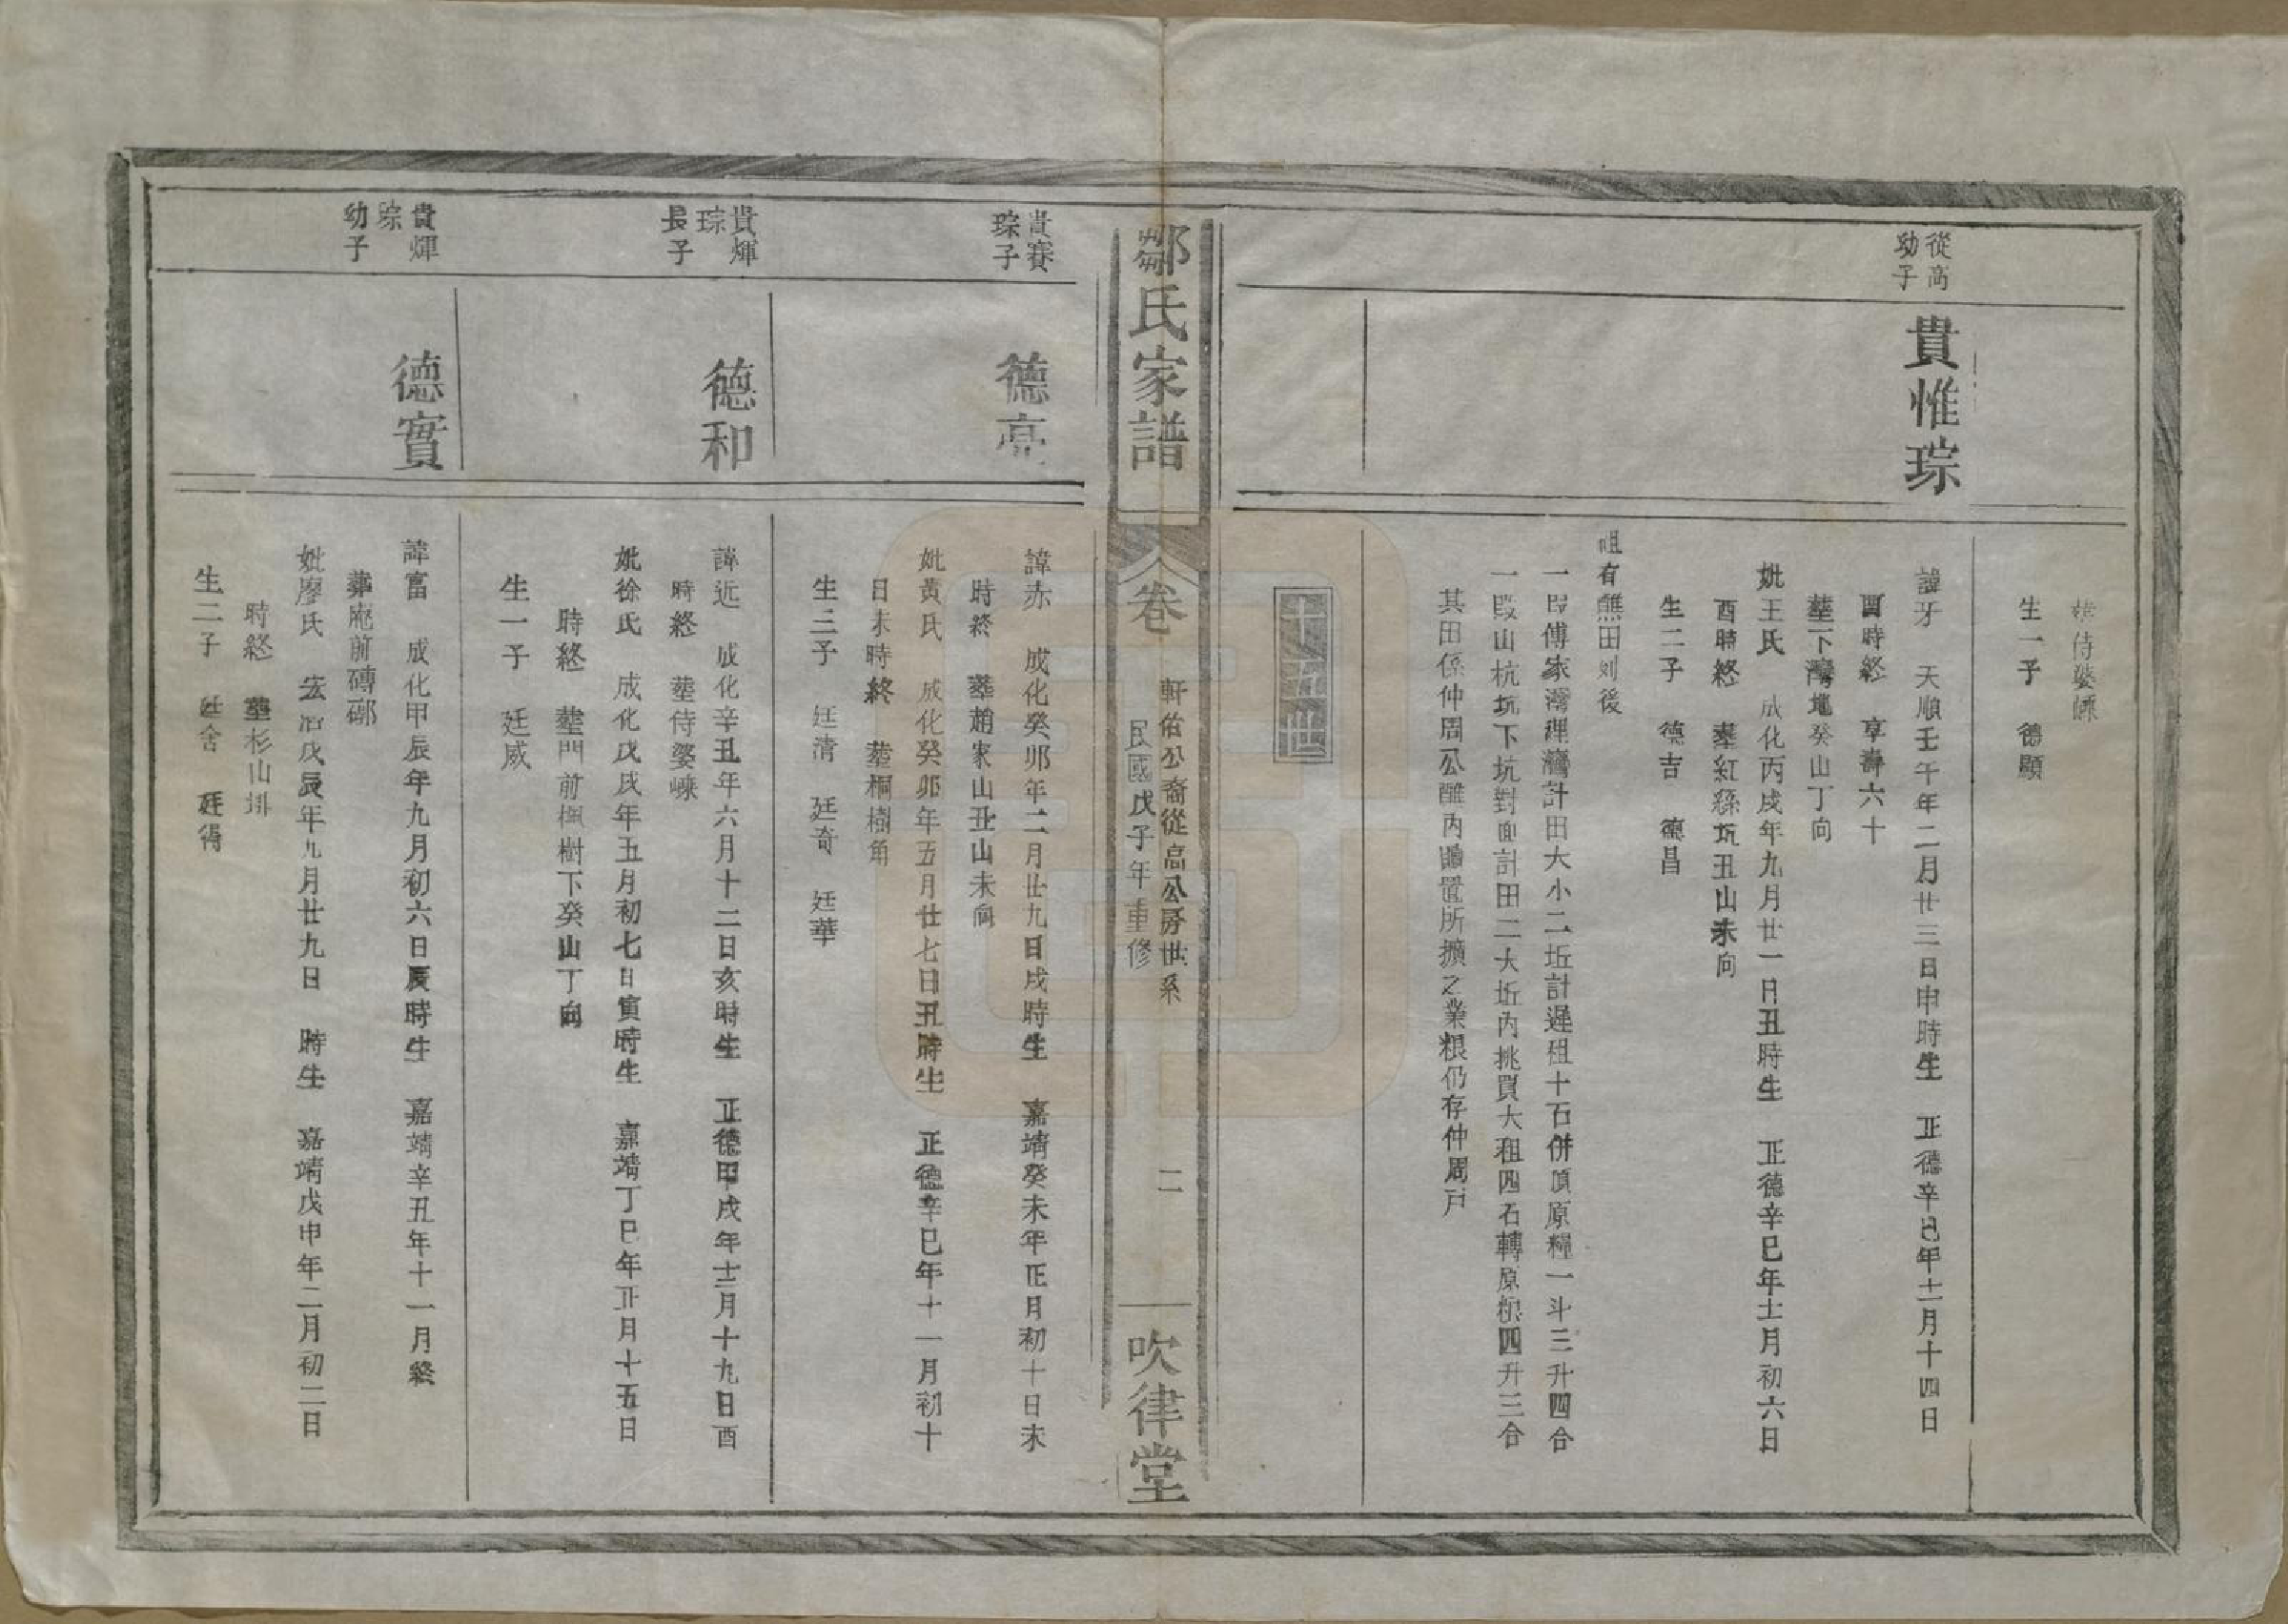 葬侍婆𡺎
生一子　德顯
從高
幼子
貴惟琮
諱牙　天順壬午年二月廿三日申時生　正德辛巳年十二月十四日
酉時終　享壽六十
葬下灣墘癸山丁向
妣王氏　成化丙戌年九月廿一日丑時生　正德辛巳年十二月初六日
酉時終　葬紅緜坑丑山未向
生二子　德吉　德昌
咀有醮田列後
一段傅家灣裡灣計田大小二坵計遲租十石併頂原糧一斗三升四合
一段山杭坑下坑對面計田二大坵內挑買大租四石轉原粮四升三合
其田係仲周公醮內購置所擴之業粮仍存仲周戶
十五世
鄒氏家譜
卷
軒佑公裔從高公房世系
民國戊子年重修
二
吹律堂
貴賽
琮子
德亮
諱赤　成化癸卯年二月廿九日戌時生　嘉靖癸未年正月初十日未
時終　葬趙家山丑山未向
妣黃氏　成化癸卯年五月廿七日丑時生　正德辛巳年十一月初十
日未時終　葬桐樹角
生三子　廷清　廷奇　廷華
貴煇
琮
長子
德和
諱近　成化辛丑年六月十二日亥時生　正德甲戌年十二月十九日酉
時終　葬侍婆𡺎
妣徐氏　成化戊戌年五月初七日寅時生　嘉靖丁巳年正月十五日
時終　葬門前楓樹下癸山丁向
生一子　廷威
貴煇
琮
幼子
德實
諱富　成化甲辰年九月初六日辰時生　嘉靖辛丑年十一月終
葬庵前磚𥕢
妣廖氏　宏治戊辰年九月廿九日　時生　嘉靖戊申年二月初二日
時終　葬杉山排
生二子　廷舍　廷得